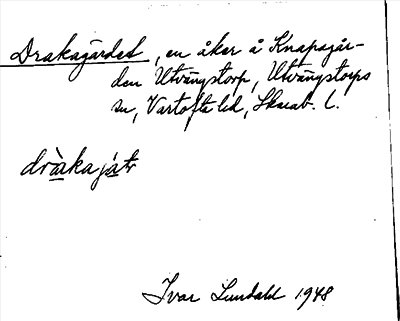 Drakagärdet, en åker å Knapagår-
den Utvängstorp, Utvängstorps
sn, Vartofta hd, Skarab. l.
dràkajátr
Ivar Lundahl 1948